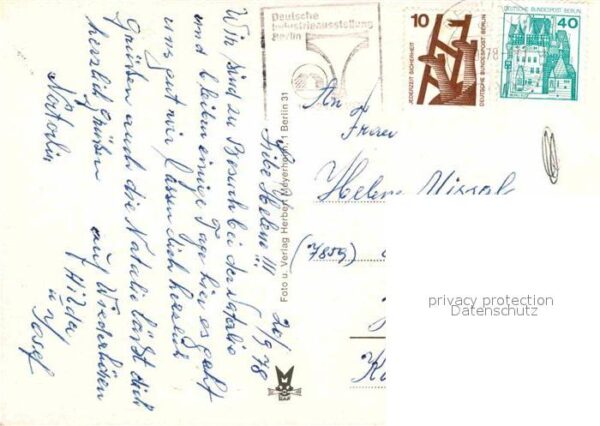 20/9 78
Liebe Helene !!!
Wir sind zu Besuch bei der Natalie
und bleiben einige Tage hier es geht
uns gut wir lassen dich herzlich
Grüßen auch die Natalie läßt dich
herzlich grüßen auf Wiedersehen
Hilda
u. Josef
Foto u. Verlag Herbert Meyerheim, 1 Berlin 31
Deutsche
Industrieausstellung
Berlin
10
JEDERZEIT SICHERHEIT
DEUTSCHE BUNDESPOST BERLIN
DEUTSCHE BUNDESPOST BERLIN
40
78
An
Helene
(7859)
privacy protection
Datenschutz